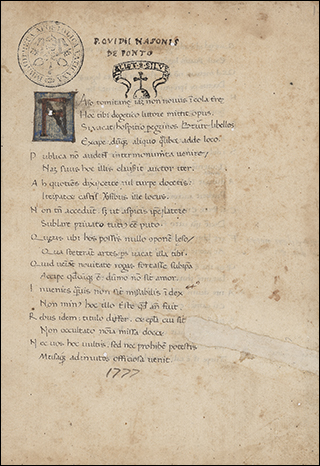 BIBLIOTHECA APOSTOLICA VATICANA
P. OVIDII NASONIS
DE PONTO
NAso tomitane iaz non novus incola tre
Hoc tibi degetico littore mittit opus
Si vacat hospitio pegrinos brute libellos
Excipe aliquo adde loco
Publica non audent intermonumenta venire
Naz suus hoc illis clauserit auctor iter
Ah quotiens dixi certe nil turpe docetis
Ite patet castis versibus ille locus
Non tn accedunt sz ut aspicis ipse latere
Sublare privato tuti ce puto
Queris ubi hos possis nullo oponere leso
Qua steterat artes ps vacat illa tibi
Quid veniat novitate roges fortasse sub ipsa
Accipe dumo no sit amor
Invenies quis non sit misabilis index
Non min hoc illo triste qd an fuit
Rebus idem titulo differt et epla cui sit
Non occultato noia missa docet
Nec vos hoc vultis sed nec prohibere potestis
Musaqz ad invitos officiosa venit
1777